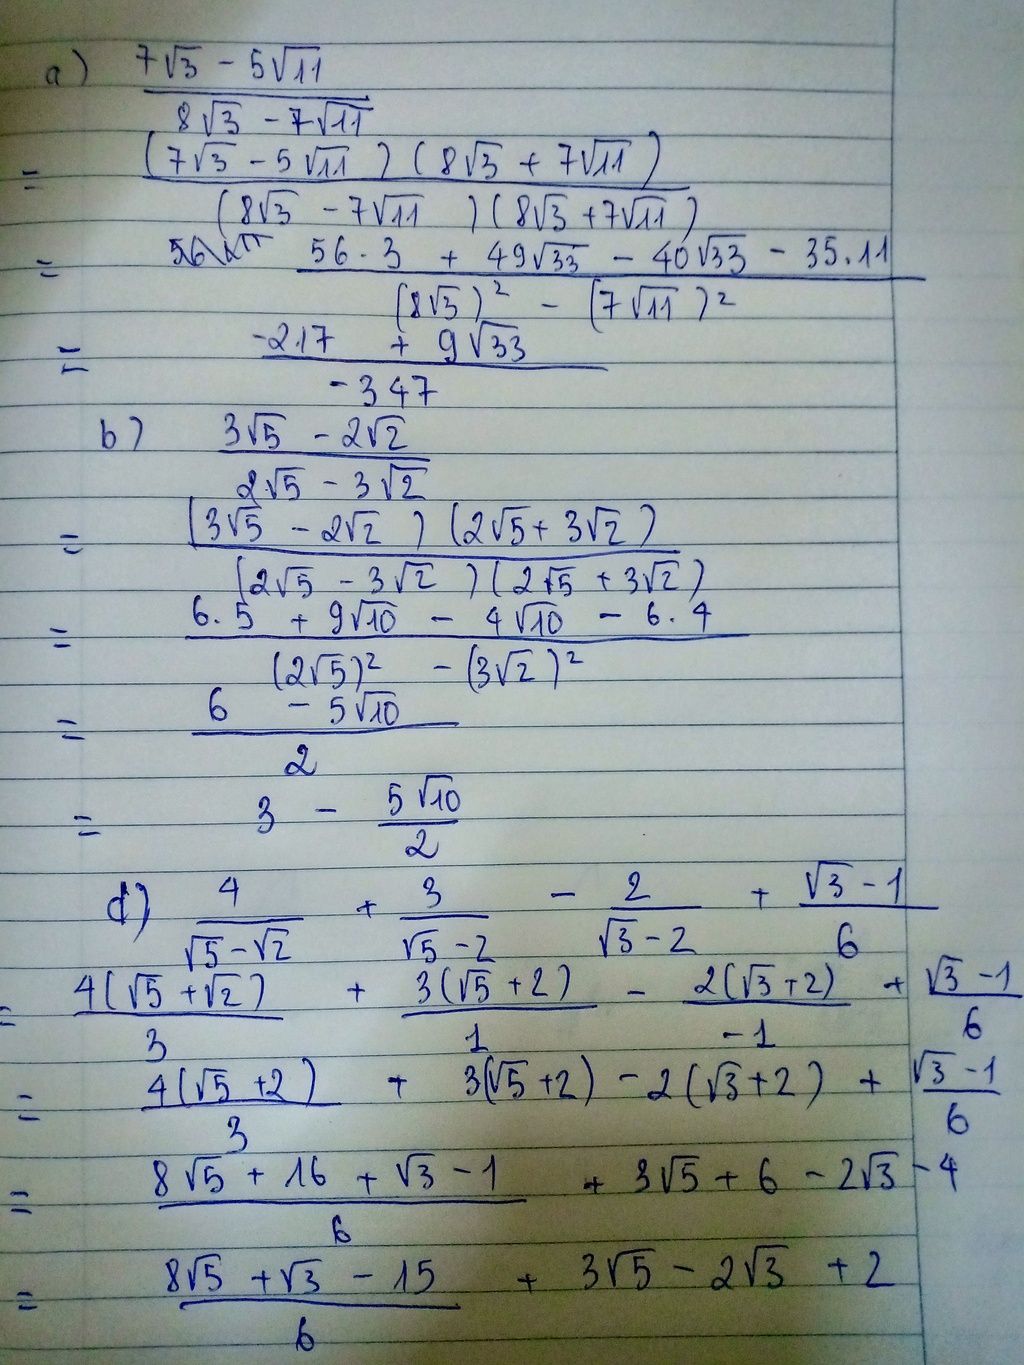 a) (7√3 - 5√11)/(8√3 - 7√11)
= ((7√3 - 5√11)(8√3 + 7√11))/((8√3 - 7√11)(8√3 + 7√11))
= (56.3 + 49√33 - 40√33 - 35.11)/((8√3)² - (7√11)²)
= (-217 + 9√33)/(-347)
b) (3√5 - 2√2)/(2√5 - 3√2)
= ((3√5 - 2√2)(2√5 + 3√2))/((2√5 - 3√2)(2√5 + 3√2))
= (6.5 + 9√10 - 4√10 - 6.4)/((2√5)² - (3√2)²)
= (6 - 5√10)/2
= 3 - 5√10/2
d) 4/(√5 - √2) + 3/(√5 - 2) - 2/(√3 - 2) + (√3 - 1)/6
= 4(√5 + √2)/3 + 3(√5 + 2)/1 - 2(√3 + 2)/(-1) + (√3 - 1)/6
= 4(√5 + 2)/3 + 3(√5 + 2) - 2(√3 + 2) + (√3 - 1)/6
= (8√5 + 16 + √3 - 1)/6 + 3√5 + 6 - 2√3 - 4
= (8√5 + √3 - 15)/6 + 3√5 - 2√3 + 2